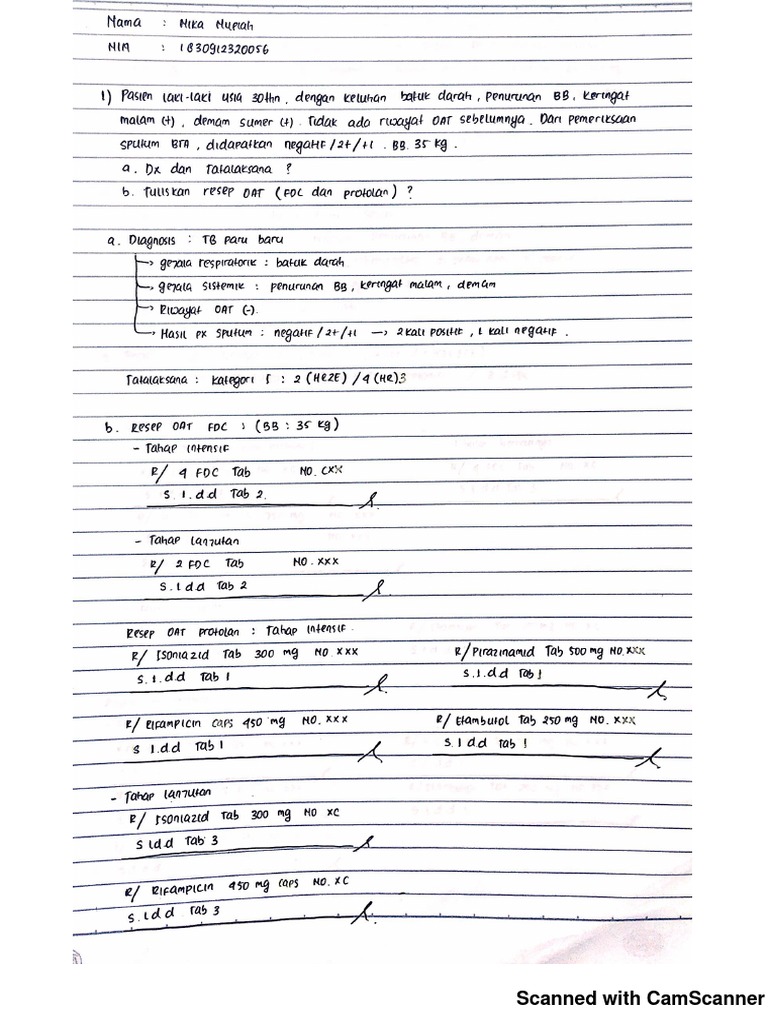 Nama : Nika Nuriah
NIM : 1830912320056
1) Pasien laki-laki usia 30thn, dengan keluhan batuk darah, penurunan BB, keringat
malam (+), demam sumer (+). Tidak ada riwayat OAT sebelumnya. Dari pemeriksaan
sputum BTA, didapatkan negatif/2+/+1. BB. 35 kg.
a. Dx dan Tatalaksana ?
b. Tuliskan resep OAT (FDC dan protolan) ?
a. Diagnosis : TB paru baru
→ gejala respiratorik : batuk darah
→ gejala sistemik : penurunan BB, keringat malam, demam
→ Riwayat OAT (-).
→ Hasil px sputum : negatif/2+/+1 → 2 kali positif, 1 kali negatif.
Tatalaksana : kategori I : 2 (HRZE) / 4 (HR)3
b. Resep OAT FDC : (BB : 35 kg)
- Tahap intensif
R/ 4 FDC Tab NO. CXX
S. 1. d.d Tab 2.
- Tahap lanjutan
R/ 2 FDC Tab NO. XXX
S. 1 d d Tab 2
Resep OAT protolan : Tahap intensif.
R/ Isoniazid Tab 300 mg NO. XXX R/ Pirazinamid Tab 500 mg NO. XXX
S. 1. d.d Tab 1 S. 1. d.d Tab 1
R/ Rifampicin caps 450 mg NO. XXX R/ Etambutol Tab 250 mg NO. XXX
S 1. d.d Tab 1 S. 1 d.d Tab 1
- Tahap lanjutan
R/ Isoniazid Tab 300 mg NO XC
S 1d.d Tab 3
R/ Rifampicin 450 mg caps NO. XC
S. 1. d d Tab 3
Scanned with CamScanner